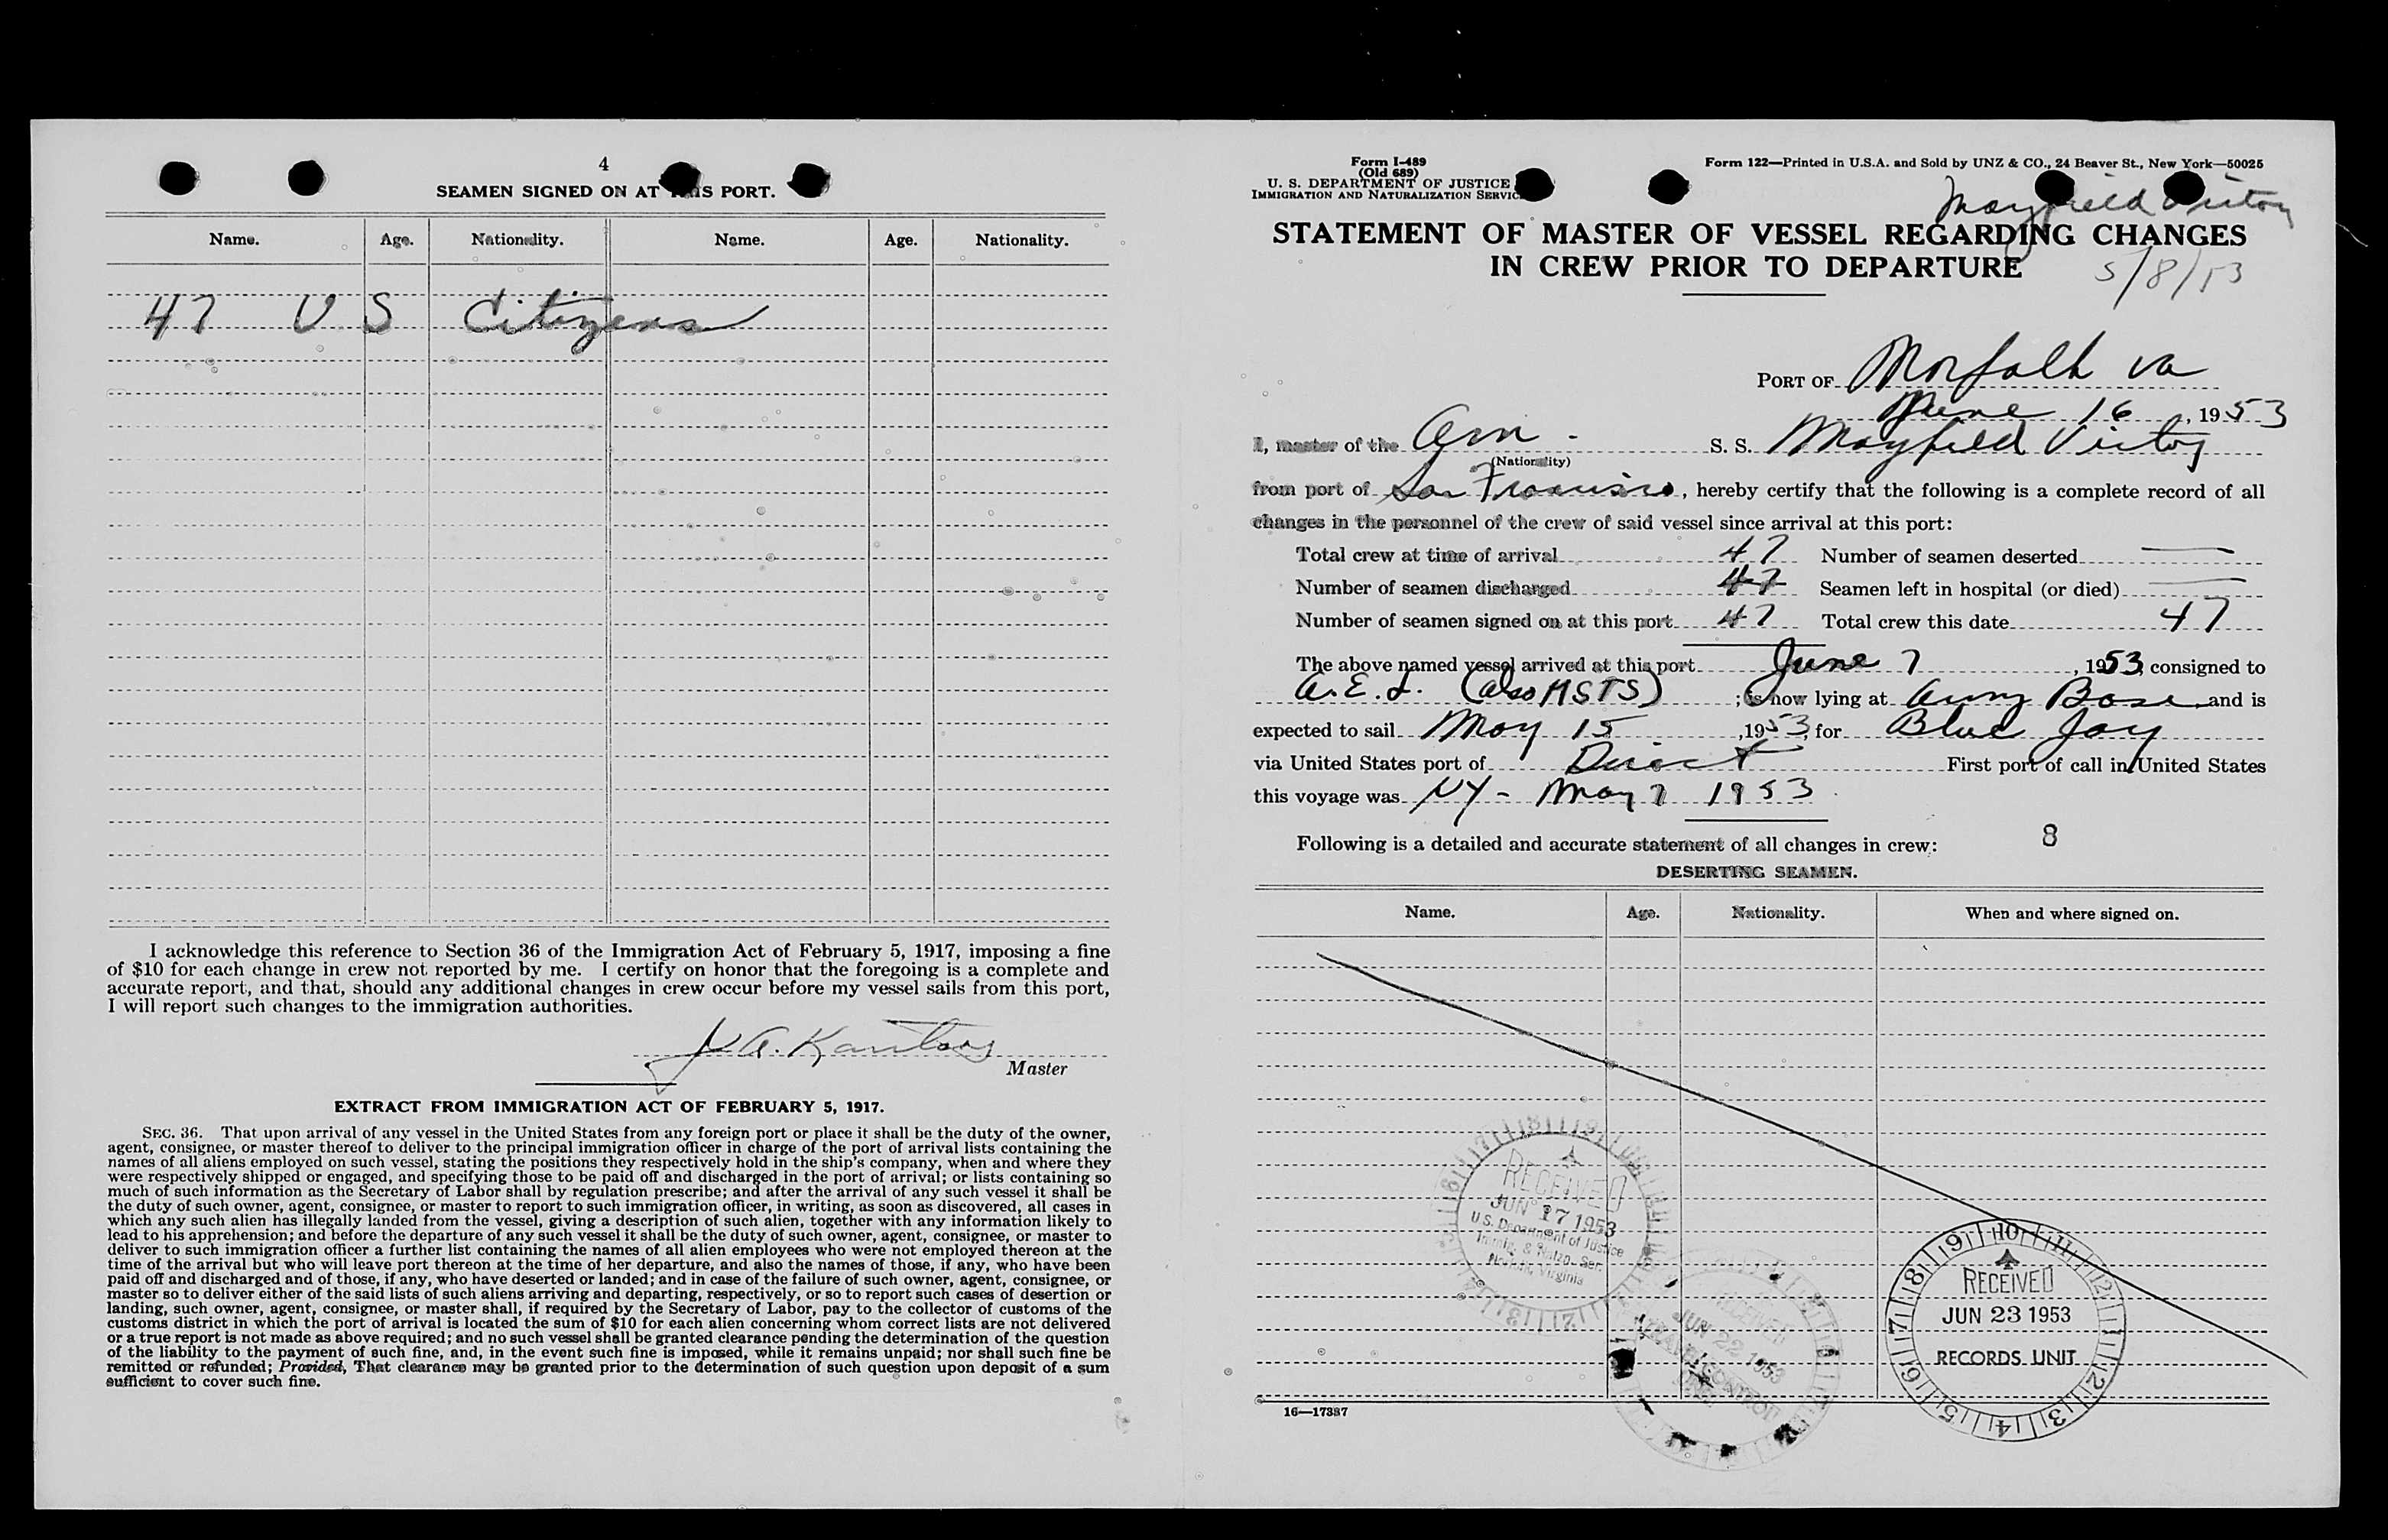 4
SEAMEN SIGNED ON AT THIS PORT.
Name. Age. Nationality. Name. Age. Nationality.
47 U S Citizens
I acknowledge this reference to Section 36 of the Immigration Act of February 5, 1917, imposing a fine
of $10 for each change in crew not reported by me. I certify on honor that the foregoing is a complete and
accurate report, and that, should any additional changes in crew occur before my vessel sails from this port,
I will report such changes to the immigration authorities.
Master
EXTRACT FROM IMMIGRATION ACT OF FEBRUARY 5, 1917.
SEC. 36. That upon arrival of any vessel in the United States from any foreign port or place it shall be the duty of the owner,
agent, consignee, or master thereof to deliver to the principal immigration officer in charge of the port of arrival lists containing the
names of all aliens employed on such vessel, stating the positions they respectively hold in the ship's company, when and where they
were respectively shipped or engaged, and specifying those to be paid off and discharged in the port of arrival; or lists containing so
much of such information as the Secretary of Labor shall by regulation prescribe; and after the arrival of any such vessel it shall be
the duty of such owner, agent, consignee, or master to report to such immigration officer, in writing, as soon as discovered, all cases in
which any such alien has illegally landed from the vessel, giving a description of such alien, together with any information likely to
lead to his apprehension; and before the departure of any such vessel it shall be the duty of such owner, agent, consignee, or master to
deliver to such immigration officer a further list containing the names of all alien employees who were not employed thereon at the
time of the arrival but who will leave port thereon at the time of her departure, and also the names of those, if any, who have been
paid off and discharged and of those, if any, who have deserted or landed; and in case of the failure of such owner, agent, consignee, or
master so to deliver either of the said lists of such aliens arriving and departing, respectively, or so to report such cases of desertion or
landing, such owner, agent, consignee, or master shall, if required by the Secretary of Labor, pay to the collector of customs of the
customs district in which the port of arrival is located the sum of $10 for each alien concerning whom correct lists are not delivered
or a true report is not made as above required; and no such vessel shall be granted clearance pending the determination of the question
of the liability to the payment of such fine, and, in the event such fine is imposed, while it remains unpaid; nor shall such fine be
remitted or refunded; Provided, That clearance may be granted prior to the determination of such question upon deposit of a sum
sufficient to cover such fine.
Form I-489
(Old 689)
U. S. DEPARTMENT OF JUSTICE
IMMIGRATION AND NATURALIZATION SERVICE
Form 122—Printed in U.S.A. and Sold by UNZ & CO., 24 Beaver St., New York—50025
Mayfield Victory
STATEMENT OF MASTER OF VESSEL REGARDING CHANGES
IN CREW PRIOR TO DEPARTURE
5/8/53
PORT OF Norfolk Va
June 16, 1953
I, master of the Am. S. S. Mayfield Victory
(Nationality)
from port of San Francisco, hereby certify that the following is a complete record of all
changes in the personnel of the crew of said vessel since arrival at this port:
Total crew at time of arrival 47 Number of seamen deserted —
Number of seamen discharged 47 Seamen left in hospital (or died) —
Number of seamen signed on at this port 47 Total crew this date 47
The above named vessel arrived at this port June 7, 1953, consigned to
A. E. L. (also MSTS); is now lying at Army Base and is
expected to sail May 15, 1953, for Blue Jay
via United States port of Direct First port of call in United States
this voyage was NY - May 7 1953
Following is a detailed and accurate statement of all changes in crew: 8
DESERTING SEAMEN.
Name. Age. Nationality. When and where signed on.
RECEIVED
JUN 17 1953
U.S. Department of Justice
Immig. & Natzn. Ser.
Norfolk, Virginia
RECEIVED
JUN 22 1953
RECEIVED
JUN 23 1953
RECORDS UNIT
16—17387